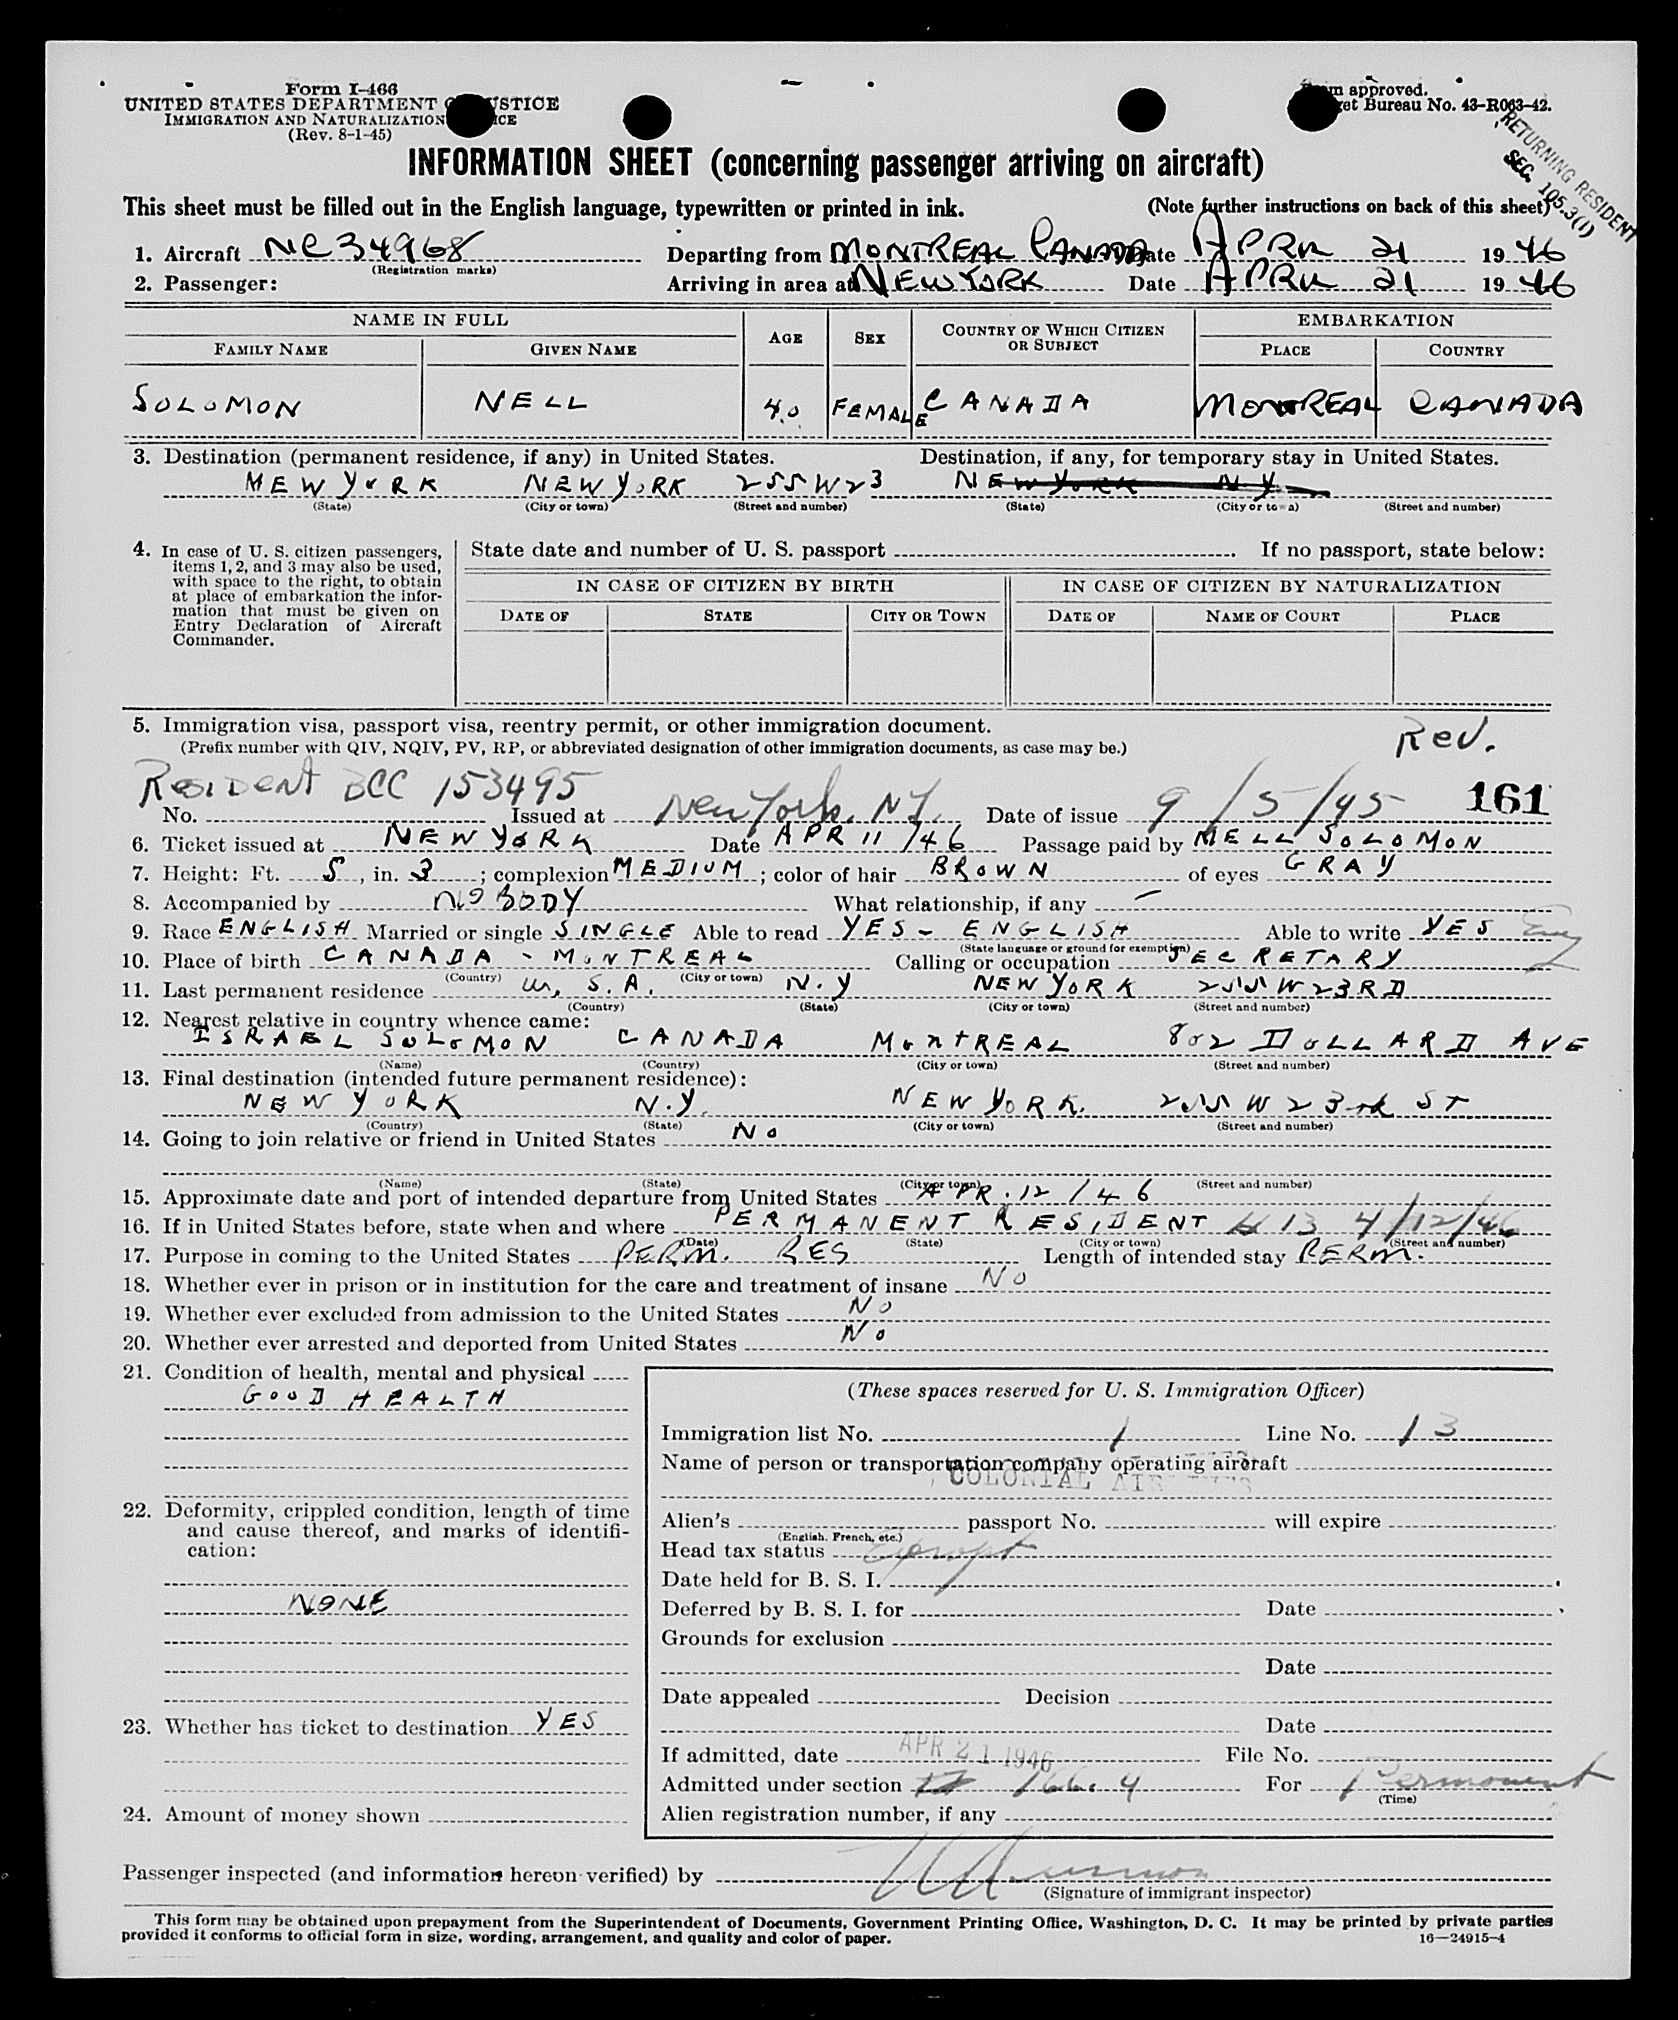 Form I-466
UNITED STATES DEPARTMENT OF JUSTICE
IMMIGRATION AND NATURALIZATION SERVICE
(Rev. 8-1-45)
Form approved.
Budget Bureau No. 43-R063-42.
RETURNING RESIDENT
SEC. 105.3(1)
INFORMATION SHEET (concerning passenger arriving on aircraft)
This sheet must be filled out in the English language, typewritten or printed in ink. (Note further instructions on back of this sheet)
1. Aircraft NC34968 Departing from MONTREAL CANADA Date APRIL 21 1946
(Registration marks)
2. Passenger: Arriving in area at NEW YORK Date APRIL 21 1946
NAME IN FULL AGE SEX COUNTRY OF WHICH CITIZEN OR SUBJECT EMBARKATION
FAMILY NAME GIVEN NAME PLACE COUNTRY
SOLOMON NELL 40 FEMALE CANADA MONTREAL CANADA
3. Destination (permanent residence, if any) in United States. Destination, if any, for temporary stay in United States.
NEW YORK NEW YORK 255 W 23 NEW YORK N.Y.
(State) (City or town) (Street and number) (State) (City or town) (Street and number)
4. In case of U. S. citizen passengers, items 1, 2, and 3 may also be used, with space to the right, to obtain at place of embarkation the information that must be given on Entry Declaration of Aircraft Commander.
State date and number of U. S. passport . If no passport, state below:
IN CASE OF CITIZEN BY BIRTH IN CASE OF CITIZEN BY NATURALIZATION
DATE OF STATE CITY OR TOWN DATE OF NAME OF COURT PLACE
5. Immigration visa, passport visa, reentry permit, or other immigration document. Rev.
(Prefix number with QIV, NQIV, PV, RP, or abbreviated designation of other immigration documents, as case may be.)
No. Resident BCC 153495 Issued at New York, NY. Date of issue 9/5/45 161
6. Ticket issued at NEW YORK Date APR 11/46 Passage paid by NELL SOLOMON
7. Height: Ft. 5, in. 3; complexion MEDIUM; color of hair BROWN of eyes GRAY
8. Accompanied by NOBODY What relationship, if any —
9. Race ENGLISH Married or single SINGLE Able to read YES - ENGLISH Able to write YES
(State language or ground for exemption)
10. Place of birth CANADA - MONTREAL Calling or occupation SECRETARY
(Country) (City or town)
11. Last permanent residence U.S.A. N.Y NEW YORK 255 W 23RD
(Country) (State) (City or town) (Street and number)
12. Nearest relative in country whence came:
ISRAEL SOLOMON CANADA MONTREAL 802 DOLLARD AVE
(Name) (Country) (City or town) (Street and number)
13. Final destination (intended future permanent residence):
NEW YORK N.Y. NEW YORK. 255 W 23rd ST
(Country) (State) (City or town) (Street and number)
14. Going to join relative or friend in United States NO
(Name) (State) (City or town) (Street and number)
15. Approximate date and port of intended departure from United States APR. 12/46
16. If in United States before, state when and where PERMANENT RESIDENT 13 4/12/46
(Date) (State) (City or town) (Street and number)
17. Purpose in coming to the United States PERM. RES Length of intended stay PERM.
18. Whether ever in prison or in institution for the care and treatment of insane NO
19. Whether ever excluded from admission to the United States NO
20. Whether ever arrested and deported from United States NO
21. Condition of health, mental and physical
GOOD HEALTH
22. Deformity, crippled condition, length of time and cause thereof, and marks of identification:
NONE
23. Whether has ticket to destination YES
24. Amount of money shown
(These spaces reserved for U. S. Immigration Officer)
Immigration list No. 1 Line No. 13
Name of person or transportation company operating aircraft
COLONIAL AIRLINES
Alien's passport No. will expire
(English, French, etc.)
Head tax status Exempt
Date held for B. S. I.
Deferred by B. S. I. for Date
Grounds for exclusion
Date
Date appealed Decision
Date
If admitted, date APR 21 1946 File No.
Admitted under section 166.4 For Permanent
(Time)
Alien registration number, if any
Passenger inspected (and information hereon verified) by
(Signature of immigrant inspector)
This form may be obtained upon prepayment from the Superintendent of Documents, Government Printing Office, Washington, D. C. It may be printed by private parties
provided it conforms to official form in size, wording, arrangement, and quality and color of paper. 16—24915-4